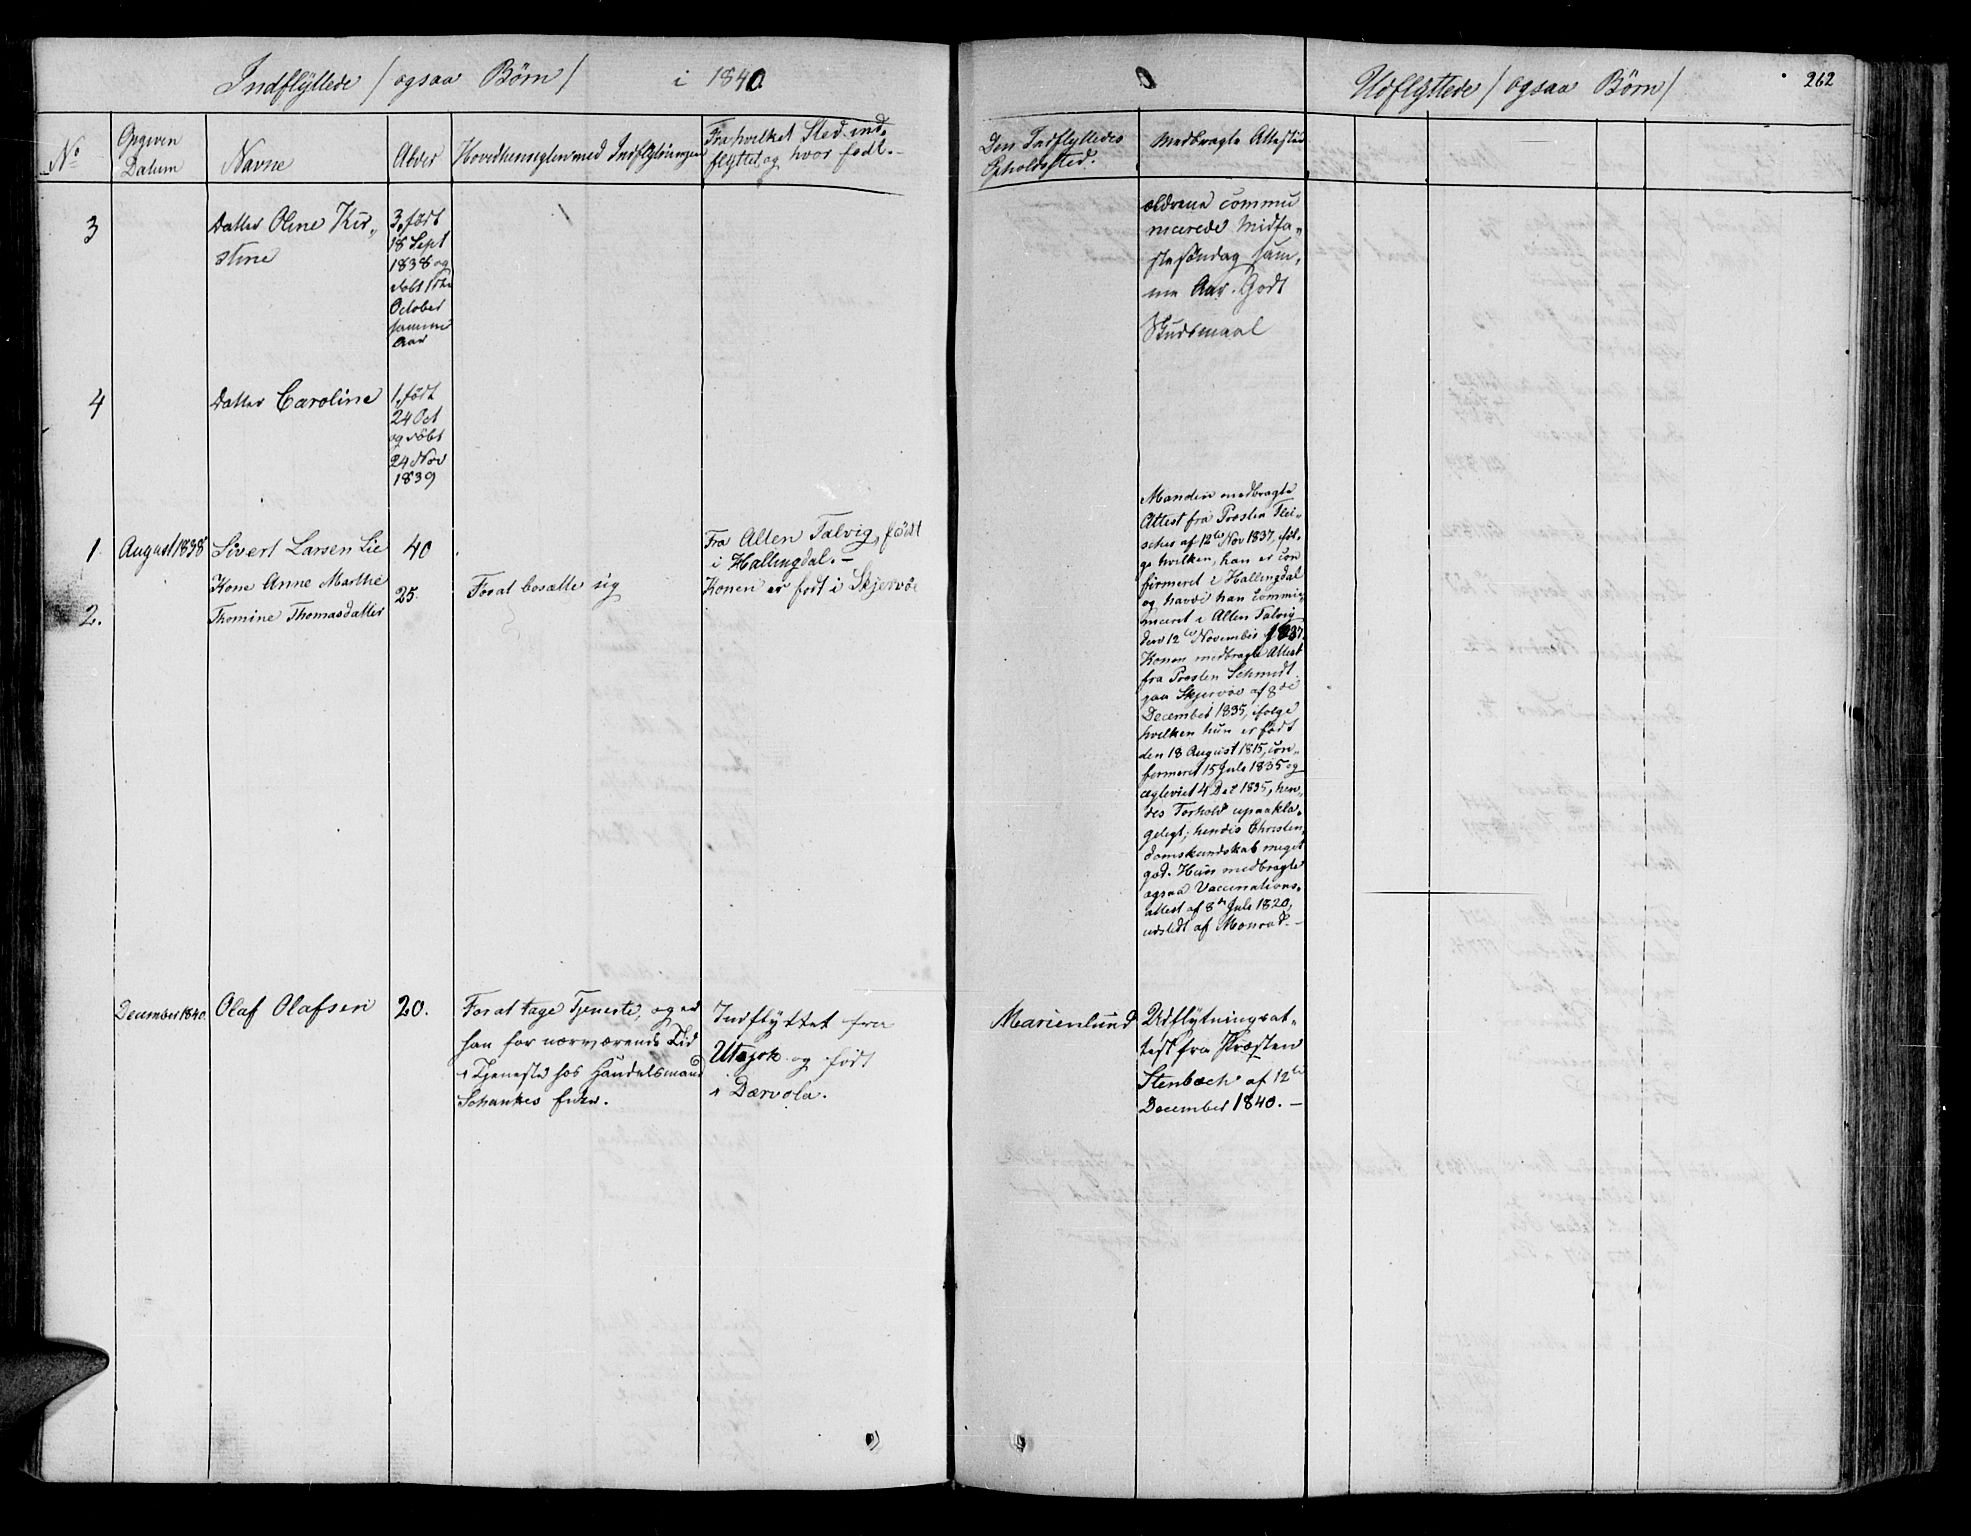 Indflÿttede / ogsaa Børn / i 1840
Udflyttede / ogsaa Børn /
262
No
Opgiven
Datum
Navne
Alder
Hovedhensigten med Indflytningen
Fra hvilket Sted ind-
flyttet, og hvor født.
Den Indflyttedes
Opholdssted.
Medbragte Attester
3
Datter Oline Kir„
stine
3, født
18 Sept
1838 og
døbt
October
samme
Aar
ældrene commu
nicerede Midfa„
stesøndag sam„
me Aar. Godt
Skudsmaal
4
Datter Caroline
1, født
24 Oct
og døbt
24 Nov
1839
1.
August 1838
Sivert Larsen Lie
40
Fra Alten Talvig, født
i Hallingdal.-
Manden medbragte
Attest fra Provsten Flei-
scher af 12te Nov 1837, iføl-
ge hvilken, han er con
firmeret i Hallingdal
og havde han commu-
niceret i Alten Talvig
den 12te November 1837.
2.
Kone Anne Marthe
Thomine Thomasdatter
25.
For at bosætte sig
Konen er født i Skjervøe
Konen medbragte Attest
fra Presten Schmidt
paa Skjervøe af 8de
December 1835, ifølge
hvilken hun er født
den 18 August 1815, con„
firmeret 15 Juli 1835 og
ægteviet 4 Dec 1835, hen„
des Forhold upaakla„
geligt; hendes Christen„
domskundskab meget
god. Hun medbragte
ogsaa Vaccinations„
attest af 8de Juli 1820,
udstedt af Monrad.-
December 1840.
Olaf Olafsen
20.
For at tage Tjeneste, og er
han for nærværende Tid
i Tjeneste hos Handelsmand
Schankes Enke.
Indflyttet fra
Utsjok og født
i Dærvola.
Marienlund
Udflytningsat„
test fra Præsten
Stenbæck af 12te
December 1840.-